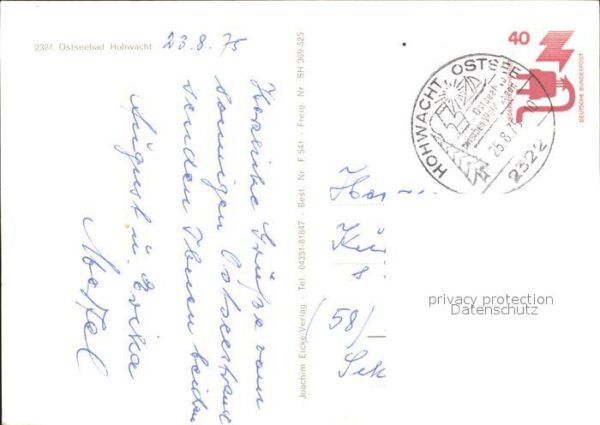 2324 Ostseebad Hohwacht
23.8.75
Herzliche Grüße vom
sonnigen Ostseestrand
senden Ihnen beiden
August u. Erika
Joachim Eicke-Verlag · Tel. 04351-81847 · Best. Nr. F 541 · Freig. Nr. SH 369-525
40
DEUTSCHE BUNDESPOST
HOHWACHT, OSTSEE
25.8.75
2322
(58)
privacy protection
Datenschutz